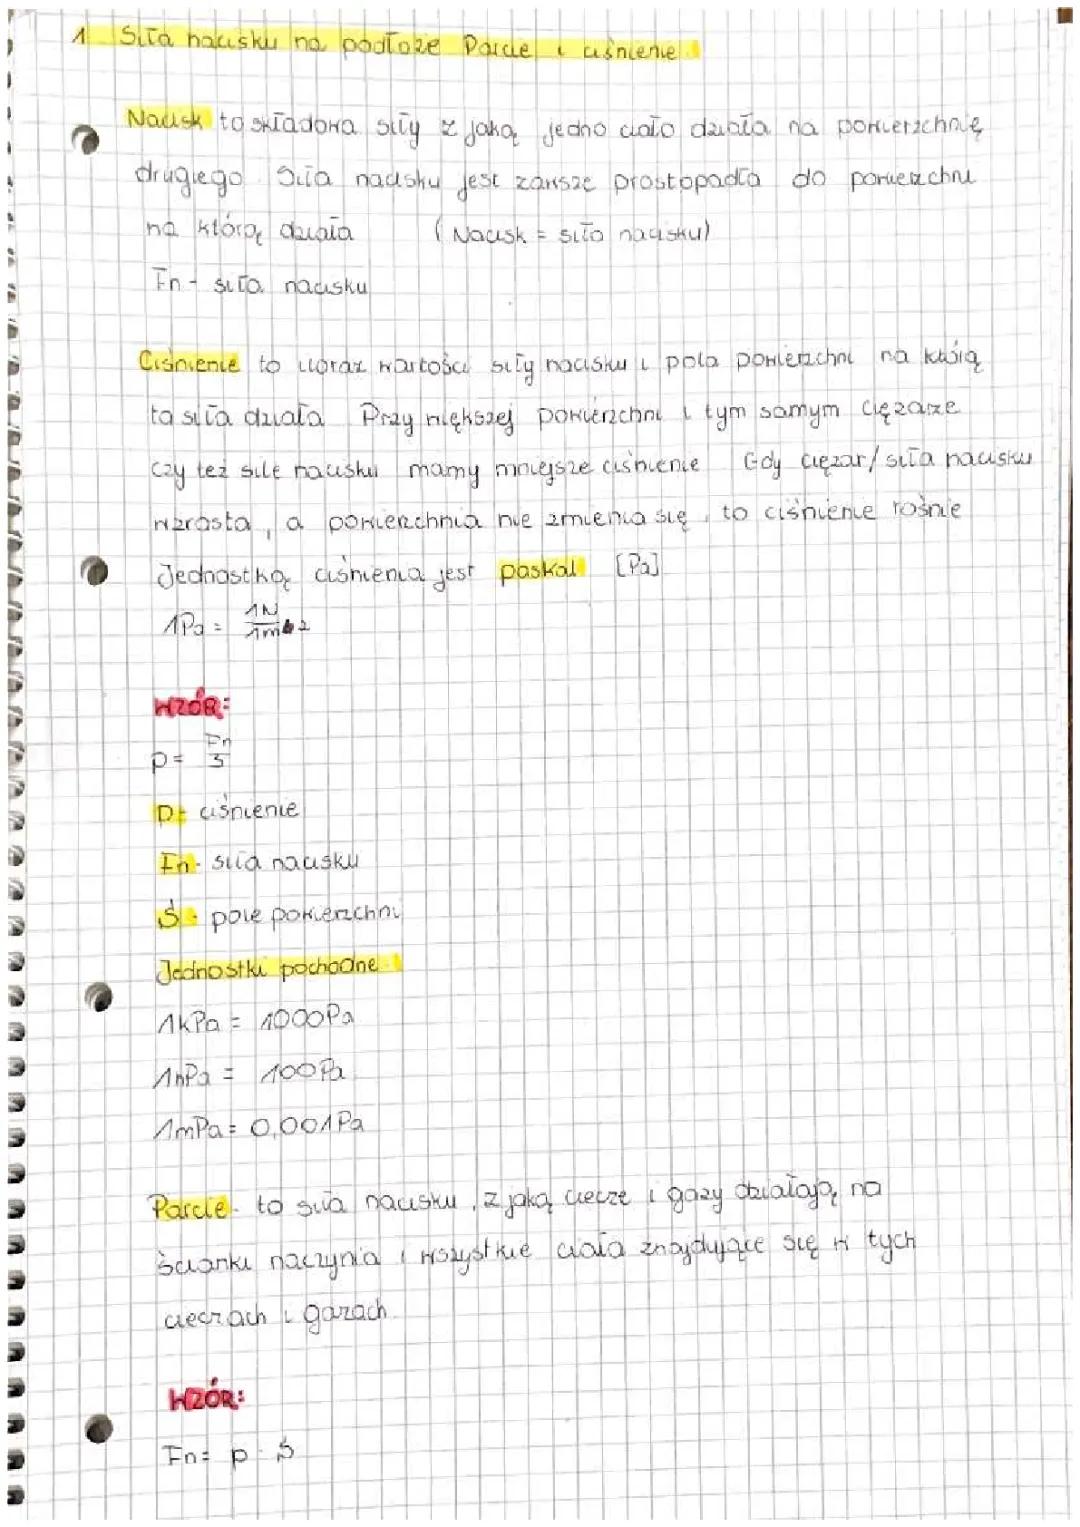 1 Siła nacisku na podłoże Parcie i ciśnienie.
Nacisk to składowa siły z jaką jedno ciało działa na powierzchnię
drugiego. Siła nacisku jest zawsze prostopadła do powierzchni
na którą działa (Nacisk = siła nacisku)
Fn - siła nacisku
Ciśnienie to iloraz wartości siły nacisku i pola powierzchni na którą
ta siła działa Przy większej powierzchni i tym samym ciężarze
czy też sile nacisku mamy mniejsze ciśnienie Gdy ciężar/siła nacisku
wzrasta, a powierzchnia nie zmienia się, to ciśnienie rośnie
Jednostką ciśnienia jest paskal [Pa]
1Pa = 1N/1m2
WZÓR:
p = Fn/S
p- ciśnienie
Fn- siła nacisku
S- pole powierzchni
Jednostki pochodne.
1kPa = 1000Pa
1hPa = 100Pa
1mPa = 0,001Pa
Parcie- to siła nacisku, z jaką ciecze i gazy działają na
ścianki naczynia i wszystkie ciała znajdujące się w tych
cieczach i gazach.
WZÓR:
Fn = p · S